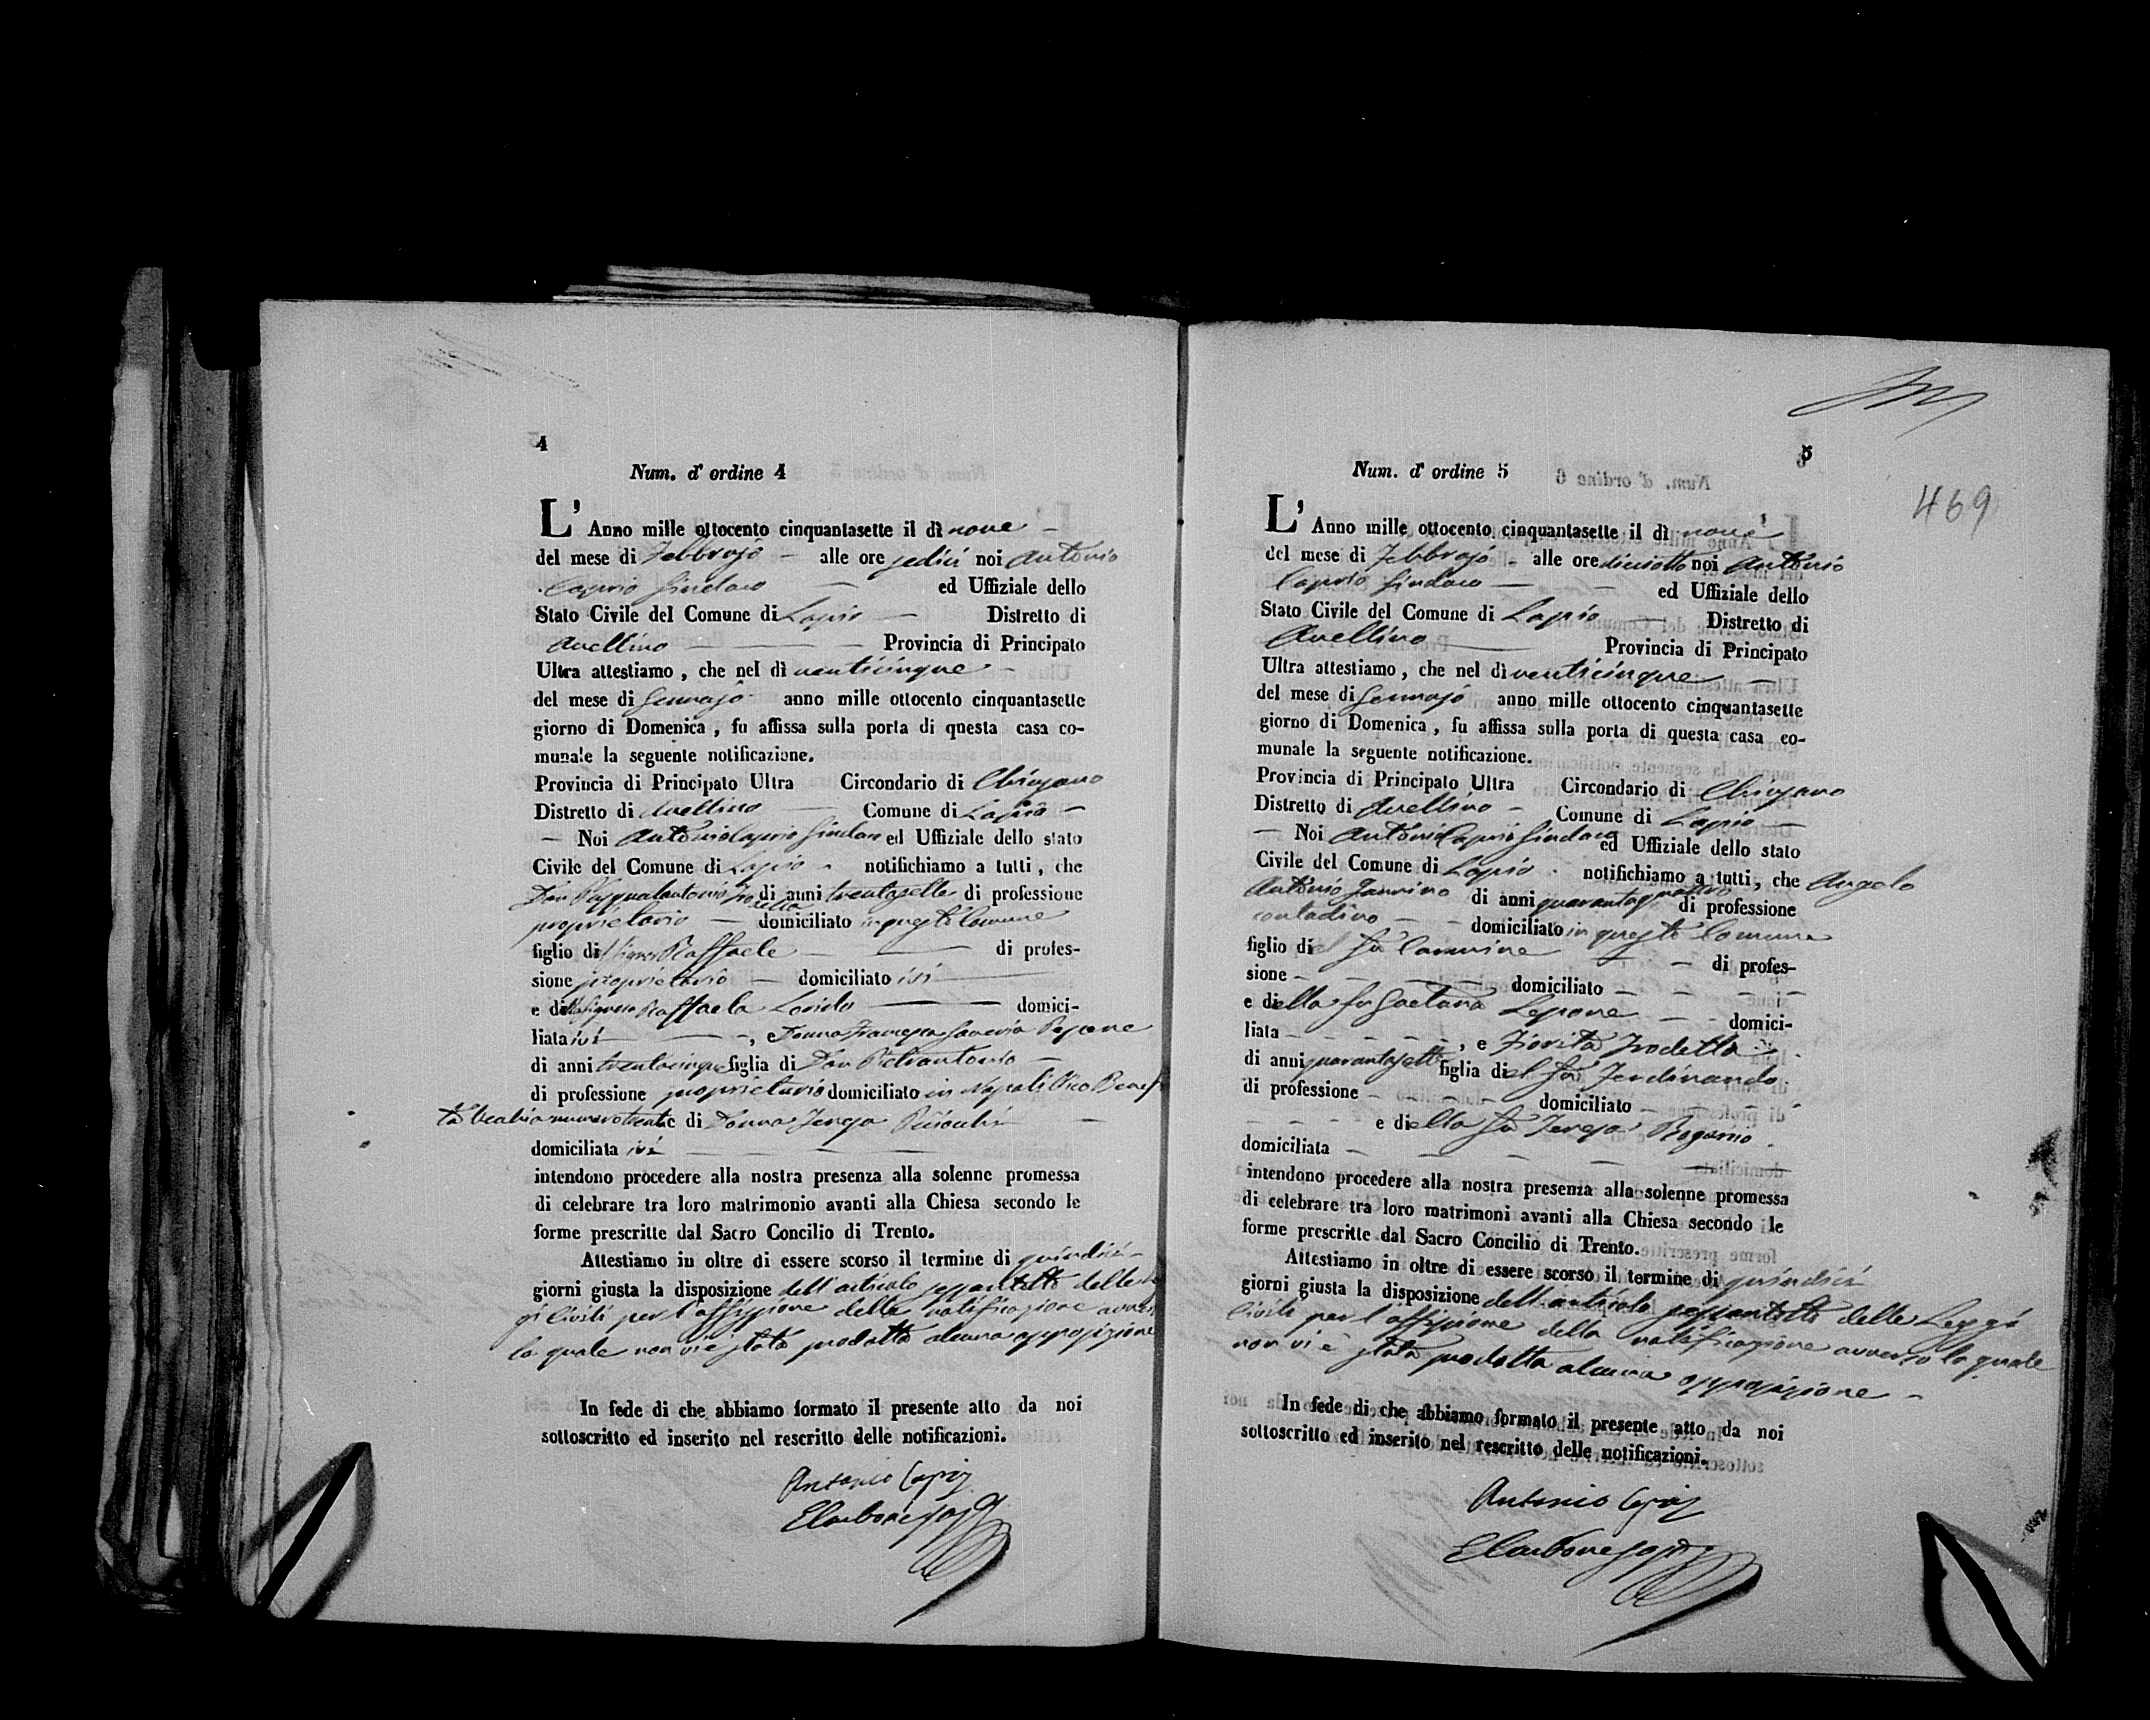 4
Num. d' ordine 4
L' Anno mille ottocento cinquantasette il dì nove
del mese di Febbrajo alle ore sedici noi Antonio
Caprio Sindaco ed Uffiziale dello
Stato Civile del Comune di Lapio Distretto di
Avellino Provincia di Principato
Ultra attestiamo , che nel dì venticinque
del mese di Gennajo anno mille ottocento cinquantasette
giorno di Domenica , fu affissa sulla porta di questa casa co-
munale la seguente notificazione.
Provincia di Principato Ultra Circondario di Chiusano
Distretto di Avellino Comune di Lapio
Noi Antonio Caprio Sindaco ed Uffiziale dello stato
Civile del Comune di Lapio notifichiamo a tutti , che
Don Pasqualantonio di anni trentasette di professione
proprietario domiciliato in questo Comune
figlio di Raffaele di profes-
sione proprietario domiciliato ivi
e di Raffaela domici-
liata ivi , e Donna Francesca Saveria
di anni trentacinque figlia di Don Pietrantonio
di professione proprietario domiciliato in Napoli Vico
numero trenta e di Donna Teresa
domiciliata ivi
intendono procedere alla nostra presenza alla solenne promessa
di celebrare tra loro matrimonio avanti alla Chiesa secondo le
forme prescritte dal Sacro Concilio di Trento.
Attestiamo in oltre di essere scorso il termine di quindici
giorni giusta la disposizione dell'articolo sessantotto delle Leg
gi Civili per l'affissione della notificazione avverso
la quale non vi è stata prodotta alcuna opposizione
In fede di che abbiamo formato il presente atto da noi
sottoscritto ed inserito nel rescritto delle notificazioni.
Antonio Caprio
5
469
Num. d' ordine 5
L' Anno mille ottocento cinquantasette il dì nove
del mese di Febbrajo alle ore diciotto noi Antonio
Caprio Sindaco ed Uffiziale dello
Stato Civile del Comune di Lapio Distretto di
Avellino Provincia di Principato
Ultra attestiamo , che nel dì venticinque
del mese di Gennajo anno mille ottocento cinquantasette
giorno di Domenica , fu affissa sulla porta di questa casa co-
munale la seguente notificazione.
Provincia di Principato Ultra Circondario di Chiusano
Distretto di Avellino Comune di Lapio
Noi Antonio Caprio Sindaco ed Uffiziale dello stato
Civile del Comune di Lapio notifichiamo a tutti , che Angelo
Antonio Iannino di anni quarantaquattro di professione
contadino domiciliato in questo Comune
figlio del fu Carmine di profes-
sione domiciliato
e della fu Gaetana Lepore domici-
liata , e Fiorita Trodella
di anni quarantasette figlia del fu Ferdinando
di professione domiciliato
e della fu Teresa
domiciliata
intendono procedere alla nostra presenza alla solenne promessa
di celebrare tra loro matrimoni avanti alla Chiesa secondo le
forme prescritte dal Sacro Concilio di Trento.
Attestiamo in oltre di essere scorso il termine di quindici
giorni giusta la disposizione dell'articolo sessantotto delle Leggi
Civili per l'affissione della notificazione avverso la quale
non vi è stata prodotta alcuna opposizione
In fede di che abbiamo formato il presente atto da noi
sottoscritto ed inserito nel rescritto delle notificazioni.
Antonio Caprio